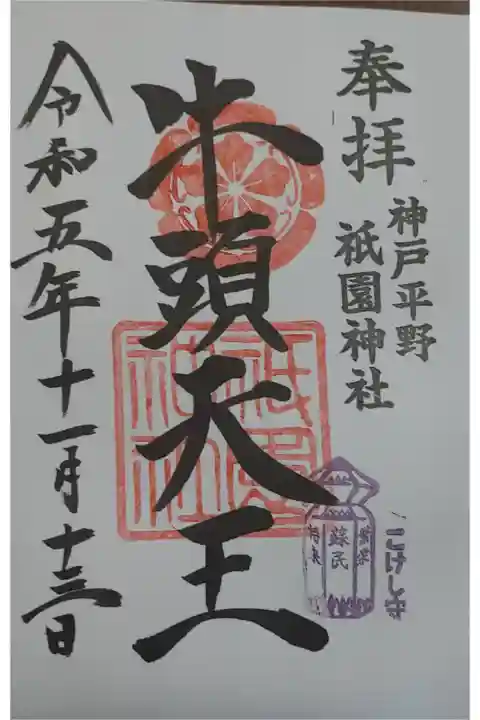 奉拝
神戸平野
祇園神社
牛頭天王
祇園
神社
蘇民
将来
こけし守
令和五年十一月十三日